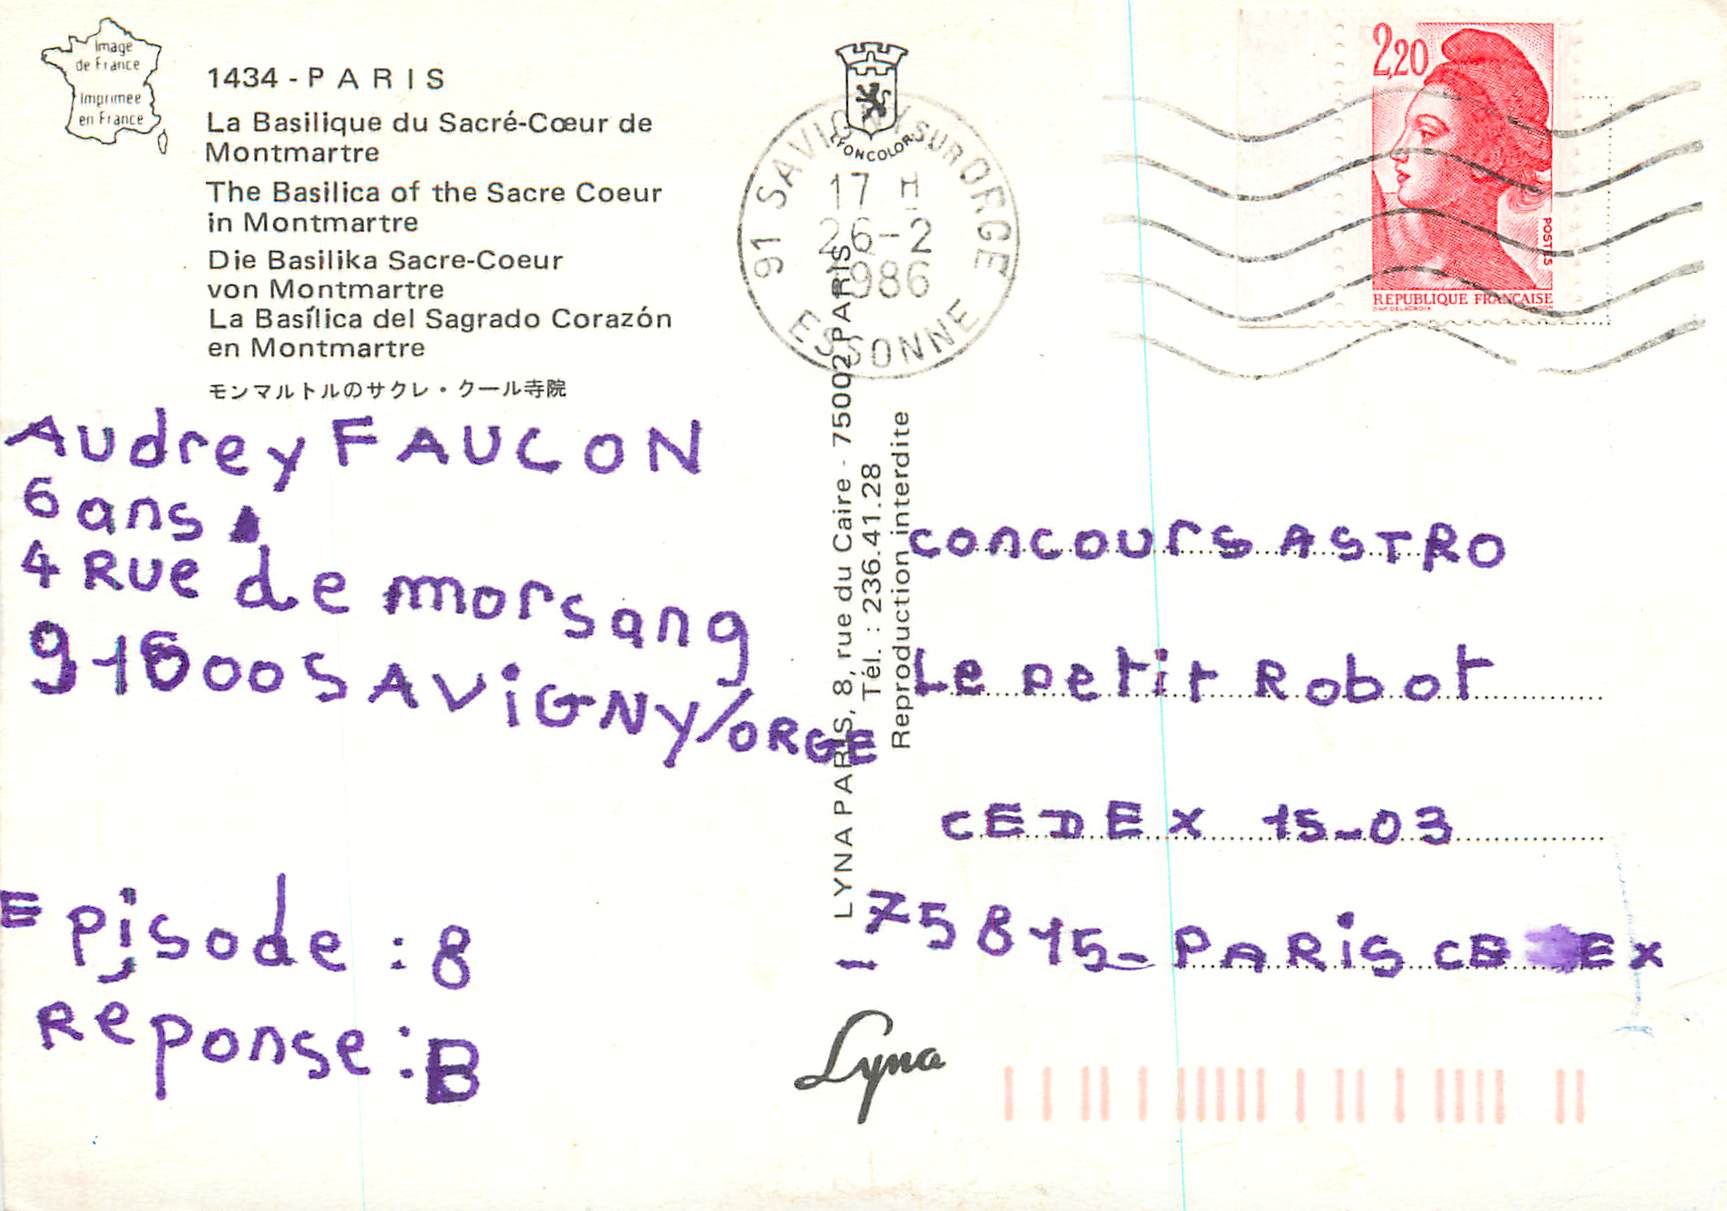 Image
de France
Imprimée
en France
1434 - PARIS
La Basilique du Sacré-Cœur de
Montmartre
The Basilica of the Sacre Coeur
in Montmartre
Die Basilika Sacre-Coeur
von Montmartre
La Basílica del Sagrado Corazón
en Montmartre
モンマルトルのサクレ・クール寺院
Audrey FAUCON
6 ans
4 Rue de morsang
91600 SAViGNY/ORGE
Episode : 8
Reponse : B
LYONCOLOR
91 SAVIGNY SUR ORGE
17 H
26-2
1986
ESSONNE
LYNA PARIS, 8, rue du Caire - 75002 PARIS
Tél. : 236.41.28
Reproduction interdite
Lyna
2,20
POSTES
REPUBLIQUE FRANÇAISE
D'AP. DELACROIX
concours ASTRO
Le petit Robot
CEDEX 15-03
-75815-PARiS CEDEX